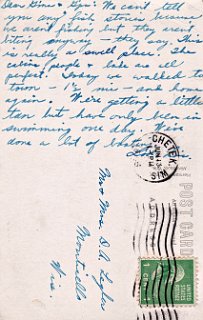 Dear Gene & Lyn: We can't tell
you any fish stories because
we aren't fishing but they aren't
biting anyway - they say. This
is really a swell place. The
cabin, people & lake are all
perfect. Today we walked to
town - 1½ mi - and home
again. We're getting a little
tan but have only been in
swimming one day. Have
done a lot of boating
CHETEK
JUN 13
PM
WIS
POST CARD
ADDRESS
Mr & Mrs. D. A.
Monticello
Wis.
UNITED
STATES
POSTAGE
1 CENT 1